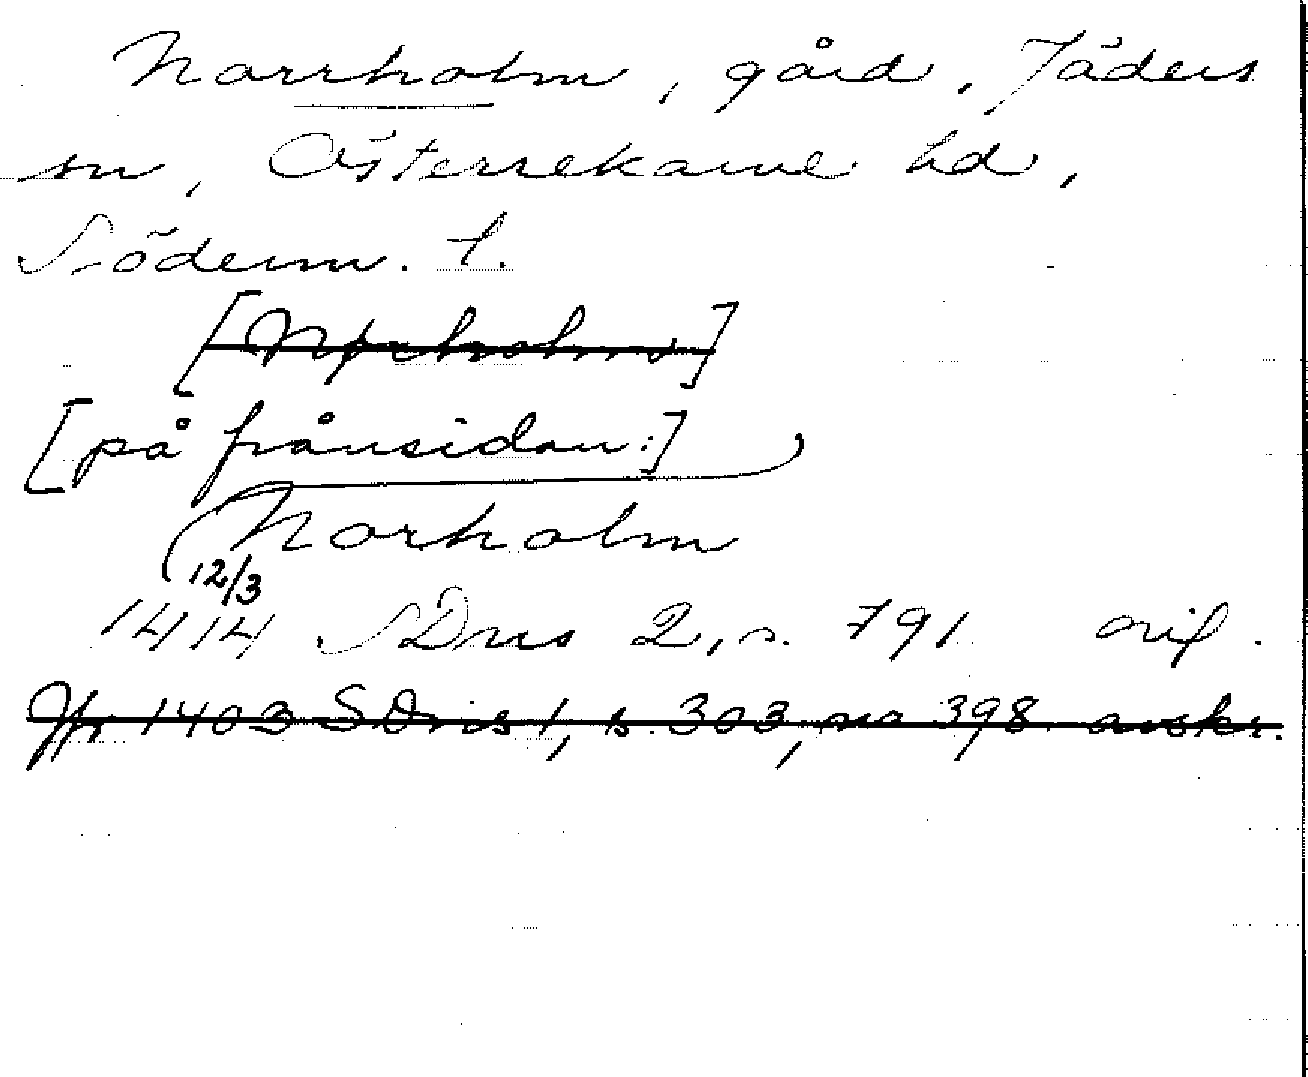 Norrholm, gård, Jäders
sn, Österrekarne hd,
Söderm. l.
[Norholms]
[på frånsidan:]
Norholm
12/3
1414 SDns 2, s. 791 orig.
Jfr 1403 SDns 1, s. 303, no 398 avskr.